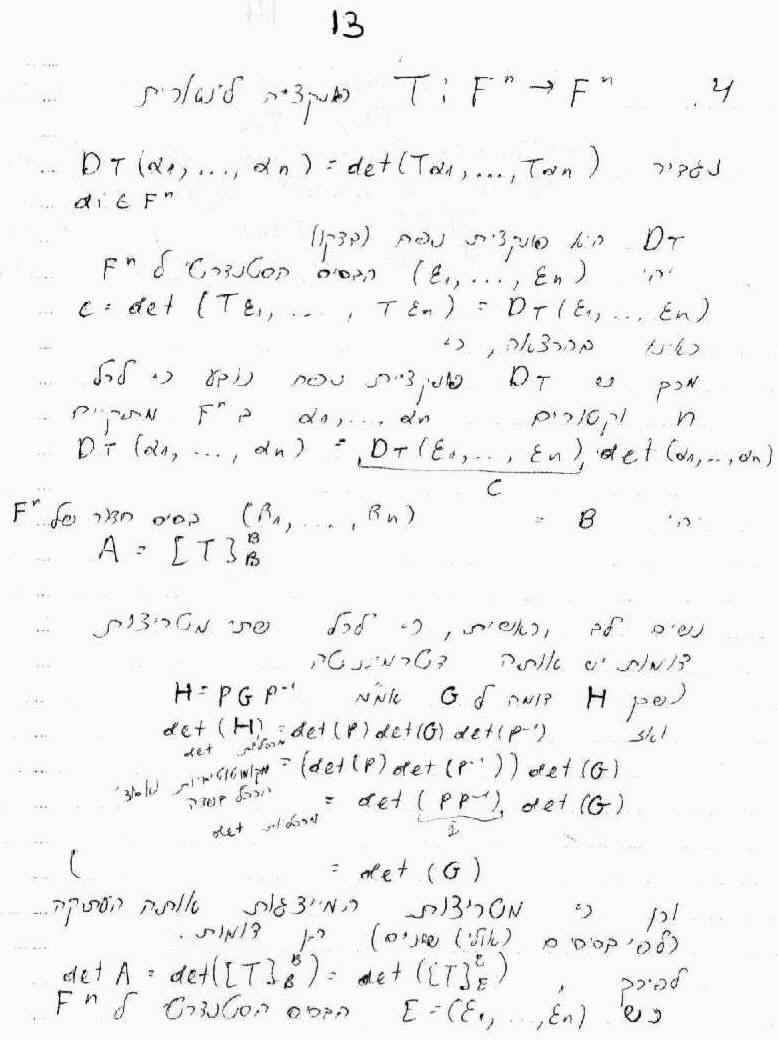 13
4. T : Fⁿ → Fⁿ פונקציה לינארית
נגדיר DT(α₁, ..., αn) = det(Tα₁, ..., Tαn)
αi ∈ Fⁿ
DT היא פונקצית נפח (בדקו)
יהי (ε₁, ..., εn) הבסיס הסטנדרטי ל Fⁿ
c = det (Tε₁, ..., Tεn) = DT(ε₁, ..., εn)
ראינו בהרצאה, כי
מכך ש DT פונקציית נפח נובע כי לכל
n וקטורים α₁, ..., αn ב Fⁿ מתקיים
DT(α₁, ..., αn) = DT(ε₁, ..., εn) · det(α₁, ..., αn)
c
יהי B = (β₁, ..., βn) בסיס סדור של Fⁿ
A = [T]_B^B
נשים לב, ראשית, כי לכל שתי מטריצות
דומות יש אותה דטרמיננטה
(שכן H דומה ל G אמ"מ H = PGP⁻¹
ואז det(H) = det(P) det(G) det(P⁻¹)
מכפליות det
= (det(P) det(P⁻¹)) det(G)
= det(PP⁻¹) det(G)
מכפליות det
= det(G) )
וכן כי מטריצות המייצגות אותה העתקה
(לפי בסיסים (אולי) שונים) הן דומות.
לפיכך, det A = det([T]_B^B) = det([T]_E^E)
כש E = (ε₁, ..., εn) הבסיס הסטנדרטי ל Fⁿ